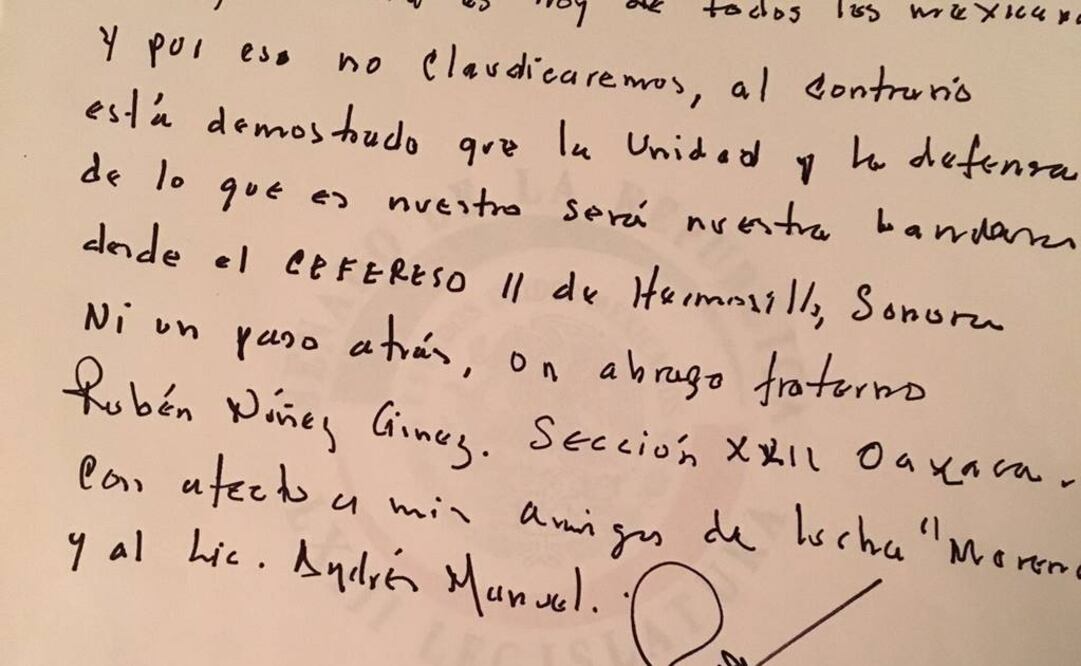 es hoy de todos los mexicano
Y por eso no claudicaremos, al contrario
está demostrado que la Unidad y la defensa
de lo que es nuestro será nuestra bandera
desde el CEFERESO 11 de Hermosillo, Sonora
Ni un paso atrás, un abrazo fraterno
Rubén Núñez Ginez. Sección XXII Oaxaca.
Con afecto a mis amigos de lucha "Morena
y al Lic. Andrés Manuel.
SENADO DE LA REPÚBLICA
LXIII LEGISLATURA